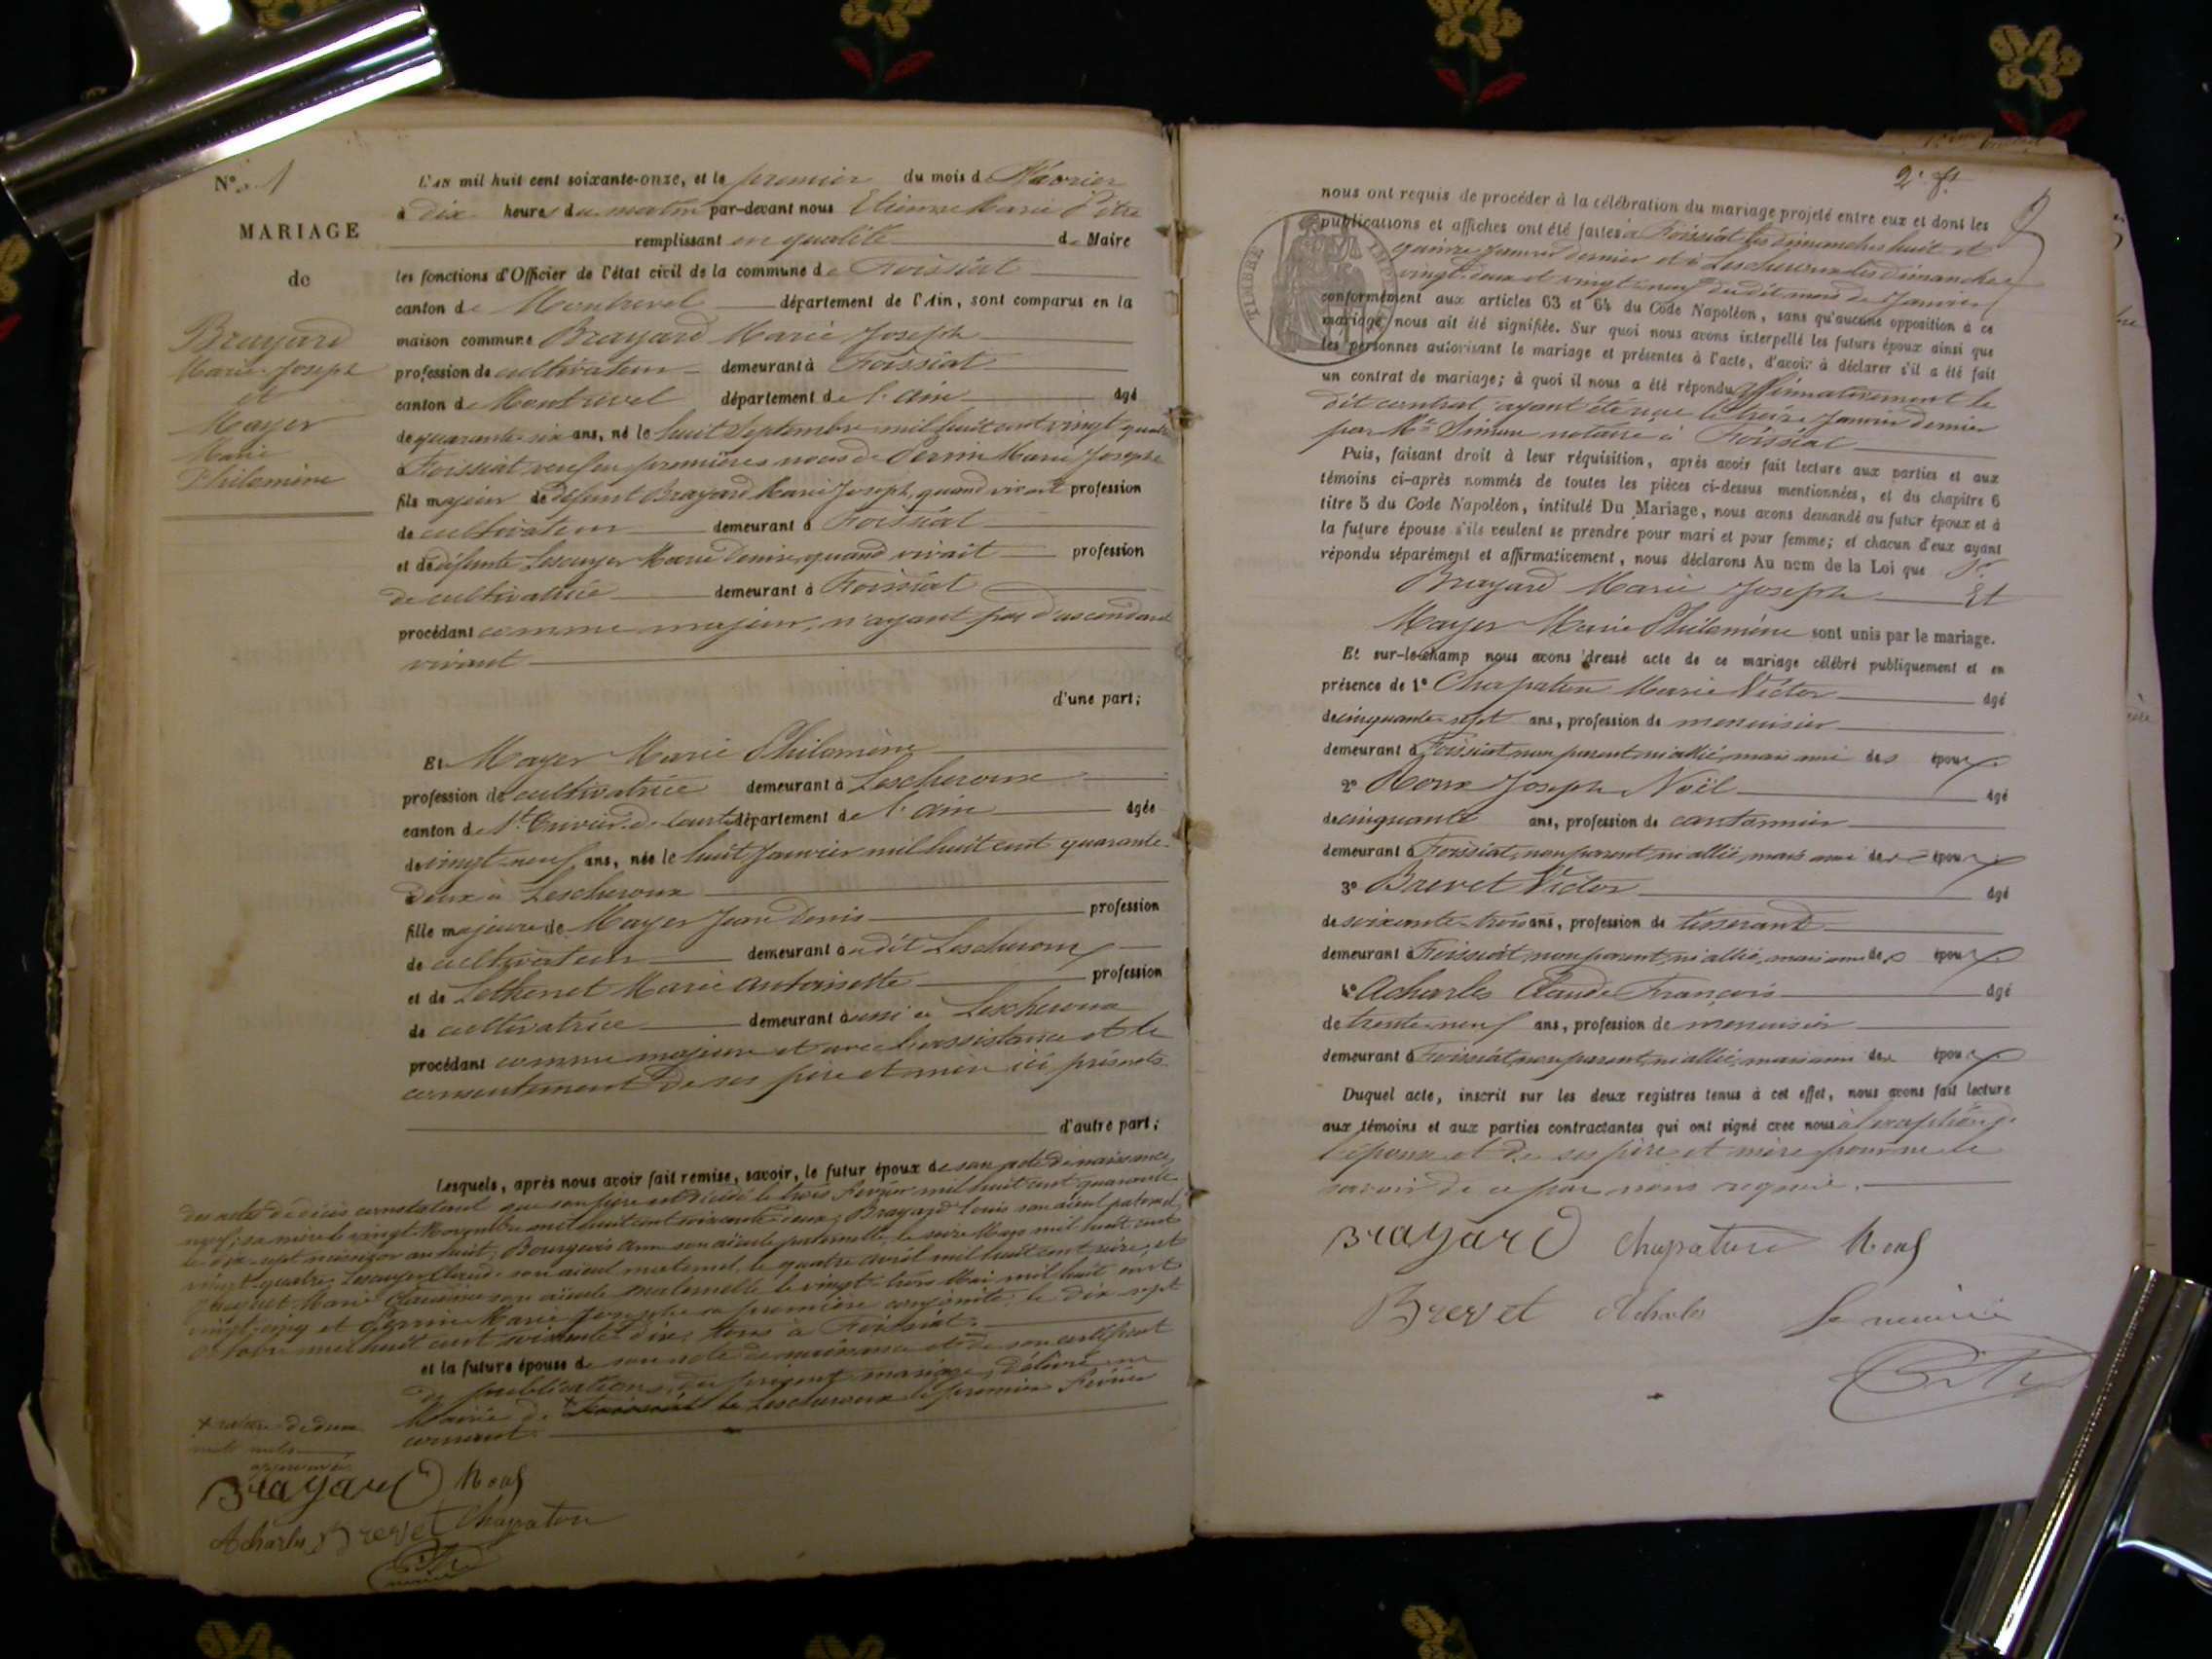 N° 1
MARIAGE
de
Brayard
Marie Joseph
et
Mayer
Marie
Philomène
L'AN mil huit cent soixante-onze, et le premier du mois de Février
à dix heures du matin par-devant nous Etienne Marie Pitre
remplissant en qualité de Maire
les fonctions d'Officier de l'état civil de la commune de Foissiat
canton de Montrevel département de l'Ain, sont comparus en la
maison commune Brayard Marie Joseph
profession de cultivateur demeurant à Foissiat
canton de Montrevel département de l'ain âgé
de quarante six ans, né le huit Septembre mil huit cent vingt quatre
à Foissiat veuf en premières noces de Perrin Marie Josephe
fils majeur de défunt Brayard Marie Joseph, quand vivait profession
de cultivateur demeurant à Foissiat
et de défunte Lescuyer Marie Denise, quand vivait profession
de cultivatrice demeurant à Foissiat
procédant comme majeur, n'ayant pas d'ascendant
vivant
d'une part;
Et Mayer Marie Philomène
profession de cultivatrice demeurant à Lescheroux
canton de St Trivier de Courtes département de l'ain âgée
de vingt-neuf ans, née le huit Janvier mil huit cent quarante
deux à Lescheroux
fille majeure de Mayer Jean Denis profession
de cultivateur demeurant au dit Lescheroux
et de Lethenet Marie Antoinette profession
de cultivatrice demeurant à Lescheroux
procédant comme majeure et avec l'assistance et le
consentement de ses père et mère ici présents
d'autre part;
Lesquels, après nous avoir fait remise, savoir, le futur époux de son acte de naissance,
des actes de décès constatant que son père est décédé le trois février mil huit cent quarante
neuf; sa mère le vingt Novembre mil huit cent soixante deux; Brayard Louis son aïeul paternel,
le dix sept messidor an huit; Bourgeois Anne son aïeule paternelle, le seize Mars mil huit cent
vingt-quatre; Lescuyer Claude son aïeul maternel, le quatre avril mil huit cent seize; et
Marie Claudine son aïeule maternelle le vingt-trois Mai mil huit cent
vingt-cinq et Perrin Marie Josephe sa première conjointe, le dix sept
octobre mil huit cent soixante dix; tous à Foissiat.
et la future épouse de son acte de naissance et de son certificat
de publications du présent mariage, délivré en
Mairie de Lescheroux le premier février
courant.
Brayard
Acharles Brevet Chapaton
2e ft
nous ont requis de procéder à la célébration du mariage projeté entre eux et dont les
publications et affiches ont été faites à Foissiat les dimanches huit et
quinze Janvier dernier et à Lescheroux les dimanches
vingt deux et vingt-neuf du dit mois de Janvier
conformément aux articles 63 et 64 du Code Napoléon, sans qu'aucune opposition à ce
mariage nous ait été signifiée. Sur quoi nous avons interpellé les futurs époux ainsi que
les personnes autorisant le mariage et présentes à l'acte, d'avoir à déclarer s'il a été fait
un contrat de mariage; à quoi il nous a été répondu affirmativement le
dit contrat ayant été reçu le treize Janvier dernier
par Me notaire à Foissiat
Puis, faisant droit à leur réquisition, après avoir fait lecture aux parties et aux
témoins ci-après nommés de toutes les pièces ci-dessus mentionnées, et du chapitre 6
titre 5 du Code Napoléon, intitulé Du Mariage, nous avons demandé au futur époux et à
la future épouse s'ils veulent se prendre pour mari et pour femme; et chacun d'eux ayant
répondu séparément et affirmativement, nous déclarons Au nom de la Loi que
Brayard Marie Joseph Et
Mayer Marie Philomène sont unis par le mariage.
Et sur-le-champ nous avons dressé acte de ce mariage célébré publiquement et en
présence de 1° Chapaton Marie Victor âgé
de cinquante-sept ans, profession de menuisier
demeurant à Foissiat, non parent, ni allié, mais ami des époux
2° Joseph Noël âgé
de cinquante ans, profession de cantonnier
demeurant à Foissiat, non parent, ni allié, mais ami des époux
3° Brevet Victor âgé
de soixante-trois ans, profession de tisserand
demeurant à Foissiat, non parent, ni allié, mais ami des époux
4° Acharles Claude François âgé
de trente-neuf ans, profession de menuisier
demeurant à Foissiat, non parent, ni allié, mais ami des époux
Duquel acte, inscrit sur les deux registres tenus à cet effet, nous avons fait lecture
aux témoins et aux parties contractantes qui ont signé avec nous à l'exception de
l'épouse et de ses père et mère pour ne le
savoir de ce par nous requis.
Brayard Chapaton
Brevet Acharles Le maire
Pitre
TIMBRE